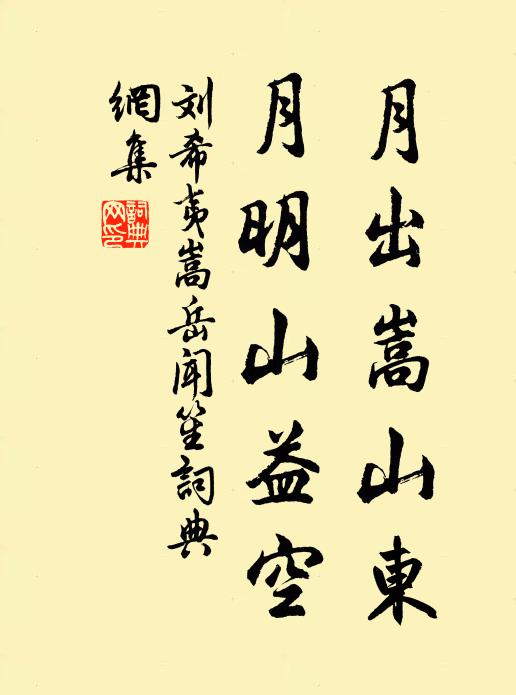 月出嵩山東
月明山益空
刘希夷嵩岳闻笙詞典
網集
詞典
网印